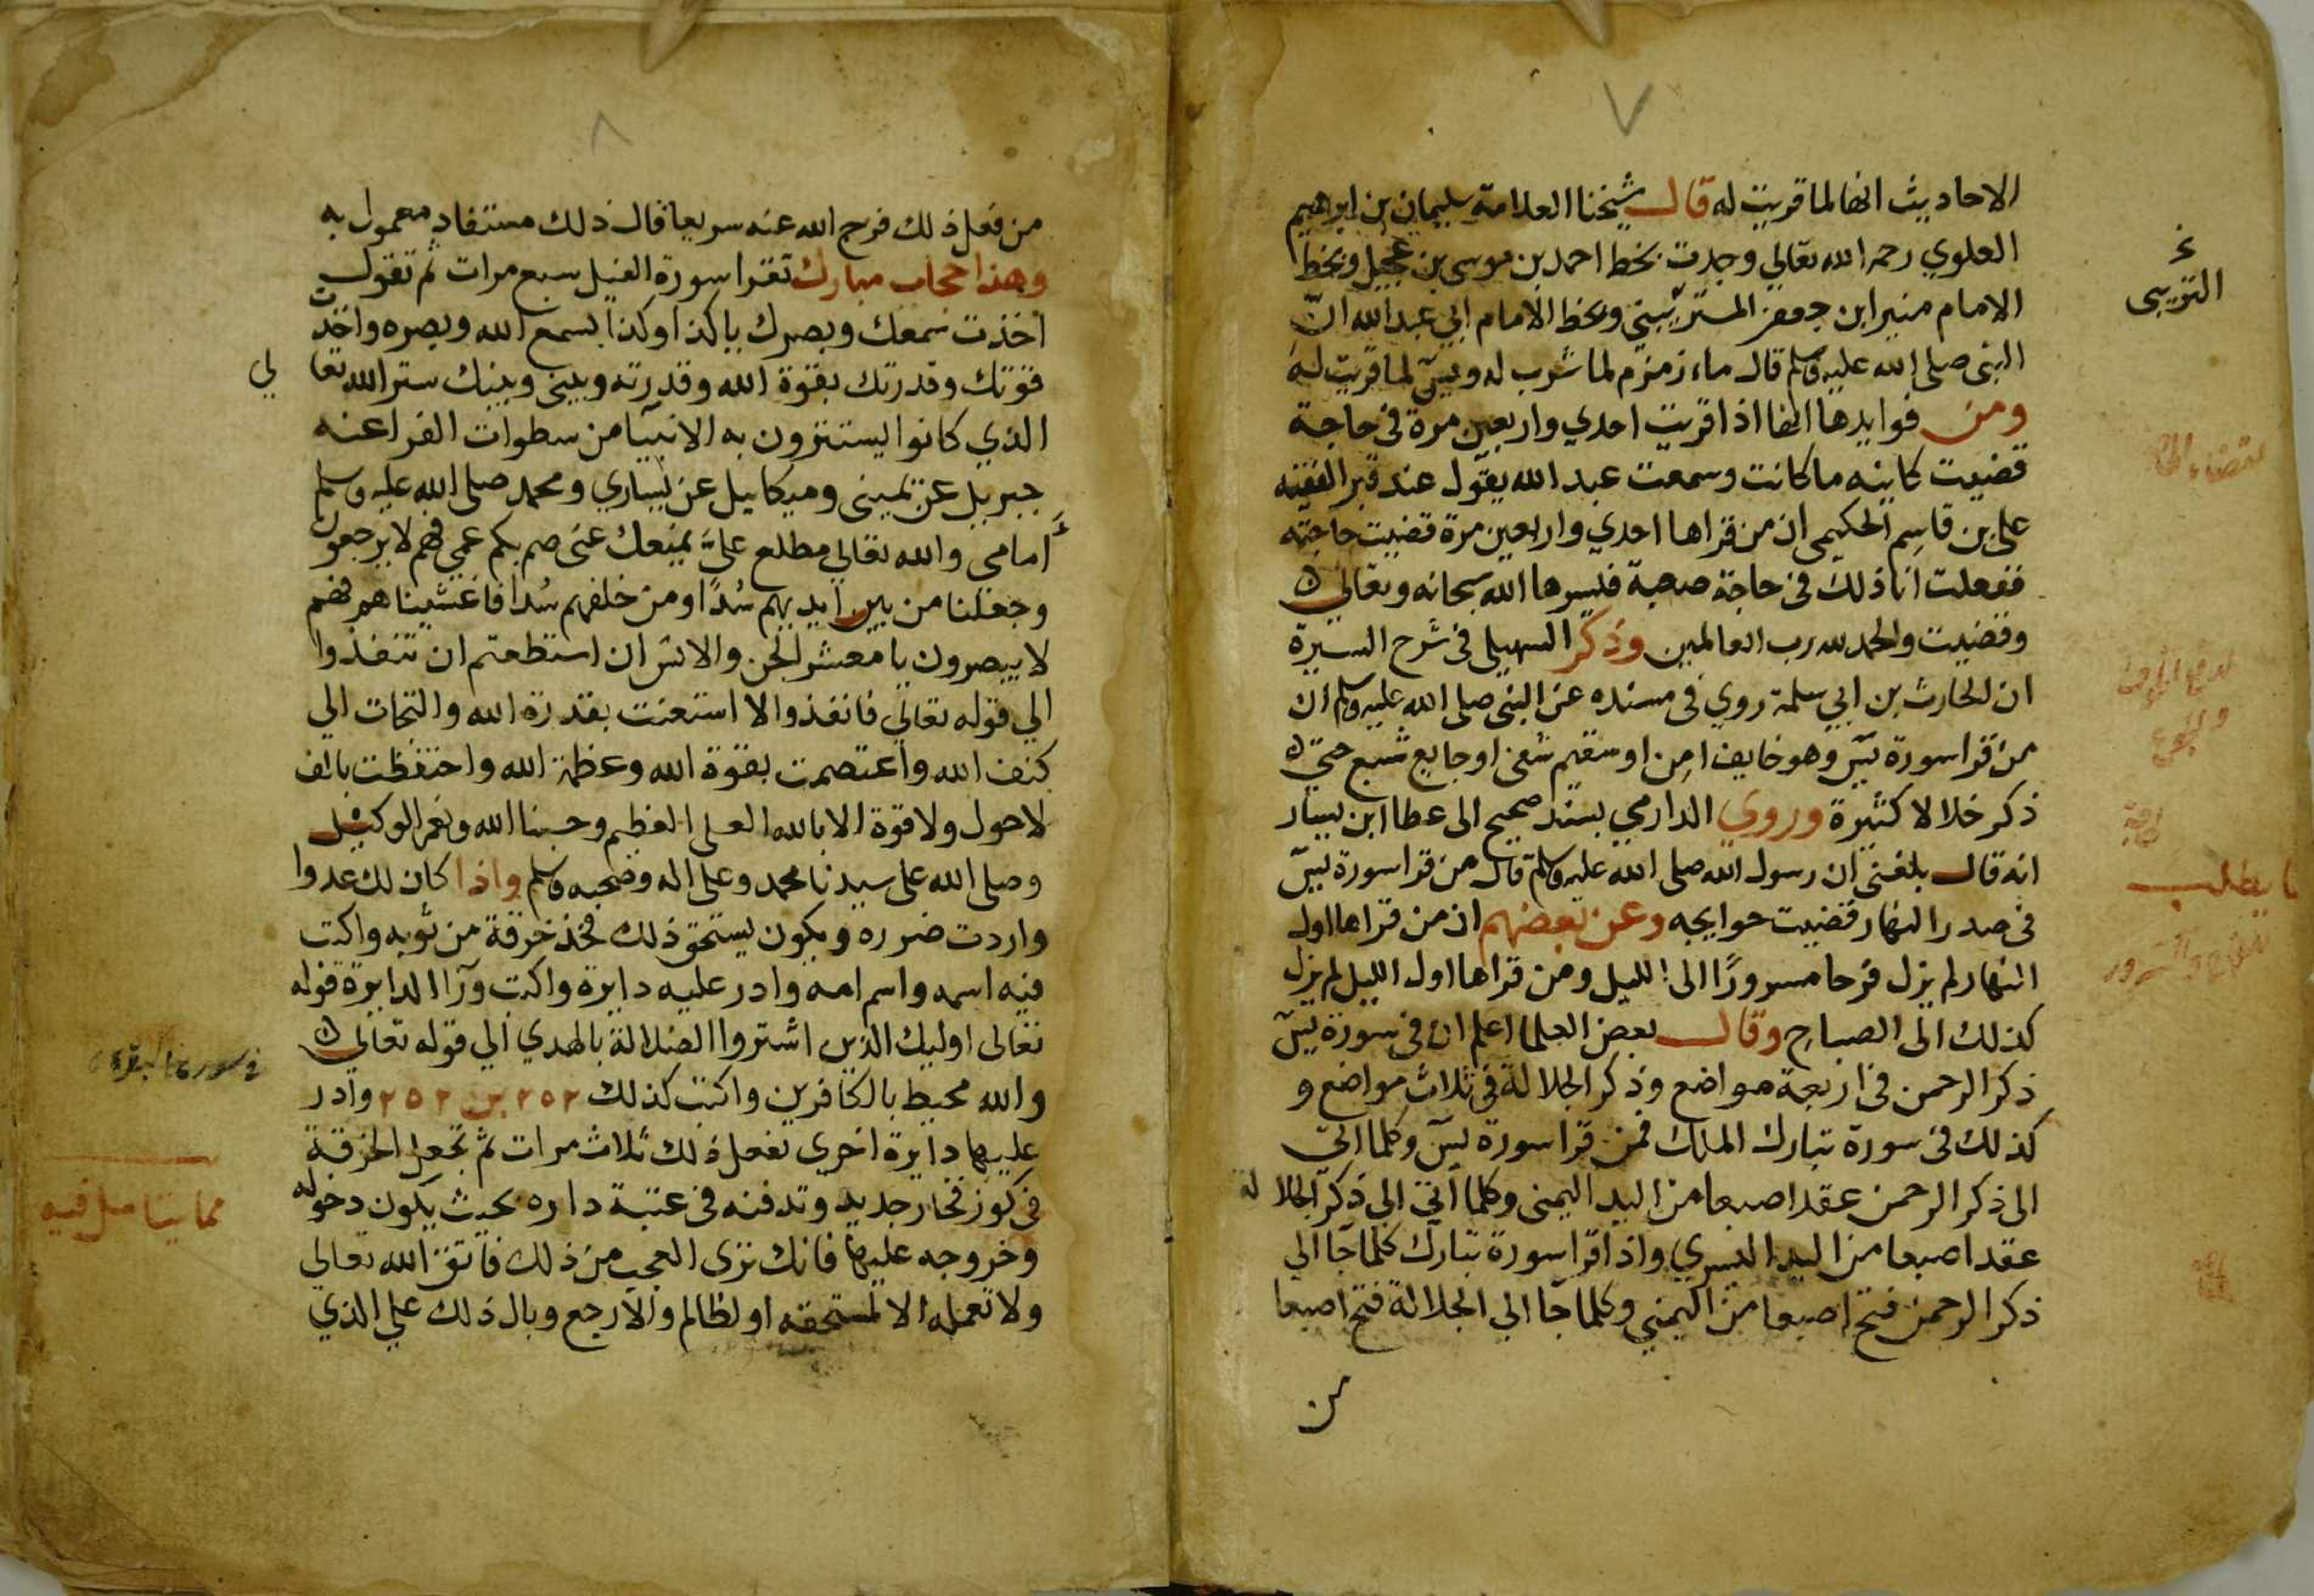 ٧
الاحاديث انها لما قريت له قال شيخنا العلامة سليمان بن ابرهيم
العلوي رحمه الله تعالي وجدت بخط احمد بن موسى بن عجيل وبخط
الامام منير ابن جعفر وبخط الامام ابي عبد الله ان
النبى صلى الله عليه وسلم قال ماء زمزم لما شرب له ويس لما قريت له
ومن فوايدها انها اذا قريت احدي واربعين مرة في حاجة
قضيت كاينه ما كانت وسمعت عبد الله يقول عند قبر الفقيه
على بن قاسم الحكيمى ان من قراها احدي واربعين مرة قضيت حاجته
ففعلت انا ذلك فى حاجة صعبة فيسرها الله سبحانه وتعالي
وقضيت والحمد لله رب العالمين وذكر السهيلى فى شرح السيرة
ان الحارث بن ابي سلمة روي فى مسنده عن النبى صلى الله عليه وسلم ان
من قرا سورة يس وهو خايف امن او سقيم شفى او جايع شبع حتى
ذكر خلالا كثيرة وروي الدارمي بسند صحيح الى عطا ابن يسار
انه قال بلغنى ان رسول الله صلى الله عليه وسلم قال من قرا سورة يس
فى صدر النهار قضيت حوايجه وعن بعضهم ان من قراها اول
النهار لم يزل فرحا مسرورًا الى الليل ومن قراها اول الليل لم يزل
كذلك الى الصباح وقال بعض العلما اعلم ان فى سورة يس
ذكر الرحمن فى اربعة مواضع وذكر الجلالة فى ثلاث مواضع و
كذلك فى سورة تبارك الملك فمن قرا سورة يس وكلما اتى
الى ذكر الرحمن عقد اصبعا من اليد اليمنى وكلما اتى الى ذكر الجلا لة
عقد اصبعا من اليد اليسري واذا قرا سورة تبارك كلما جآ الي
ذكر الرحمن فتح اصبعا من اليمني وكلما جآ الي الجلالة فتح اصبعا
من
ما يطلب
للفرح والسرور
٨
من فعل ذلك فرج الله عنه سريعا قال ذلك مستفاد معمول به
وهذا حجاب مبارك تقرا سورة الفيل سبع مرات ثم تقول
اخذت سمعك وبصرك يا كذا وكذا بسمع الله وبصره واخذت
قوتك وقدرتك بقوة الله وقدرته وبينى وبينك ستر الله تعا لي
الذي كانوا يستترون به الانبيآ من سطوات الفراعنه
جبريل عن يمينى وميكاييل عن يساري ومحمد صلى الله عليه وسلم
أمامى والله تعالي مطلع علىّ يمنعك عنى صم بكم عمي فهم لا يرجعون
وجعلنا من بين ايديهم سُدًا ومن خلفهم سُدا فاغشيناهم فهم
لا يبصرون يا معشر الجن والانس ان استطعتم ان تنفذوا
الي قوله تعالي فانفذوا الا استعنت بقدرة الله والتجات الي
كنف الله واعتصمت بقوة الله وعظمة الله واحتفظت بالف
لا حول ولا قوة الا بالله العلى العظيم وحسبنا الله ونعم الوكيل
وصلى الله على سيدنا محمد وعلى اله وصحبه وسلم واذا كان لك عدوا
واردت ضرره ويكون يستحق ذلك فخذ خرقة من ثوبه واكتب
فيه اسمه واسم امه وادر عليه دايرة واكتب ورآ الدايرة قوله
تعالى اوليك الذين اشتروا الضلالة بالهدي الي قوله تعالي
والله محيط بالكافرين واكتب كذلك ٢٥٢ بن ٢٥٢ وادر
عليها دايرة اخري تفعل ذلك ثلاث مرات ثم تجعل الخرقة
فى كوز فخار جديد وتدفنه فى عتبة داره بحيث يكون دخوله
وخروجه عليها فانك ترى العجب من ذلك فاتق الله تعالي
ولا تعمله الا لمستحقه او لظالم والا رجع وبال ذلك علي الذي
فى سورة البقرة
مما يتامل فيه